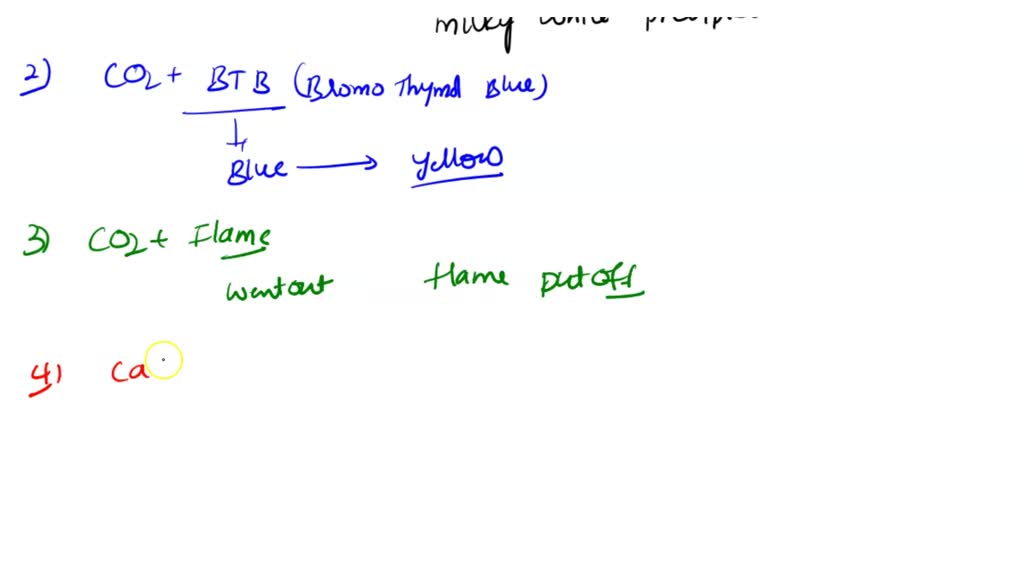 milky white
2) CO2 + BTB (Bromo Thymol Blue)
Blue → yellow
3) CO2 + Flame
went out flame put off
4) Ca